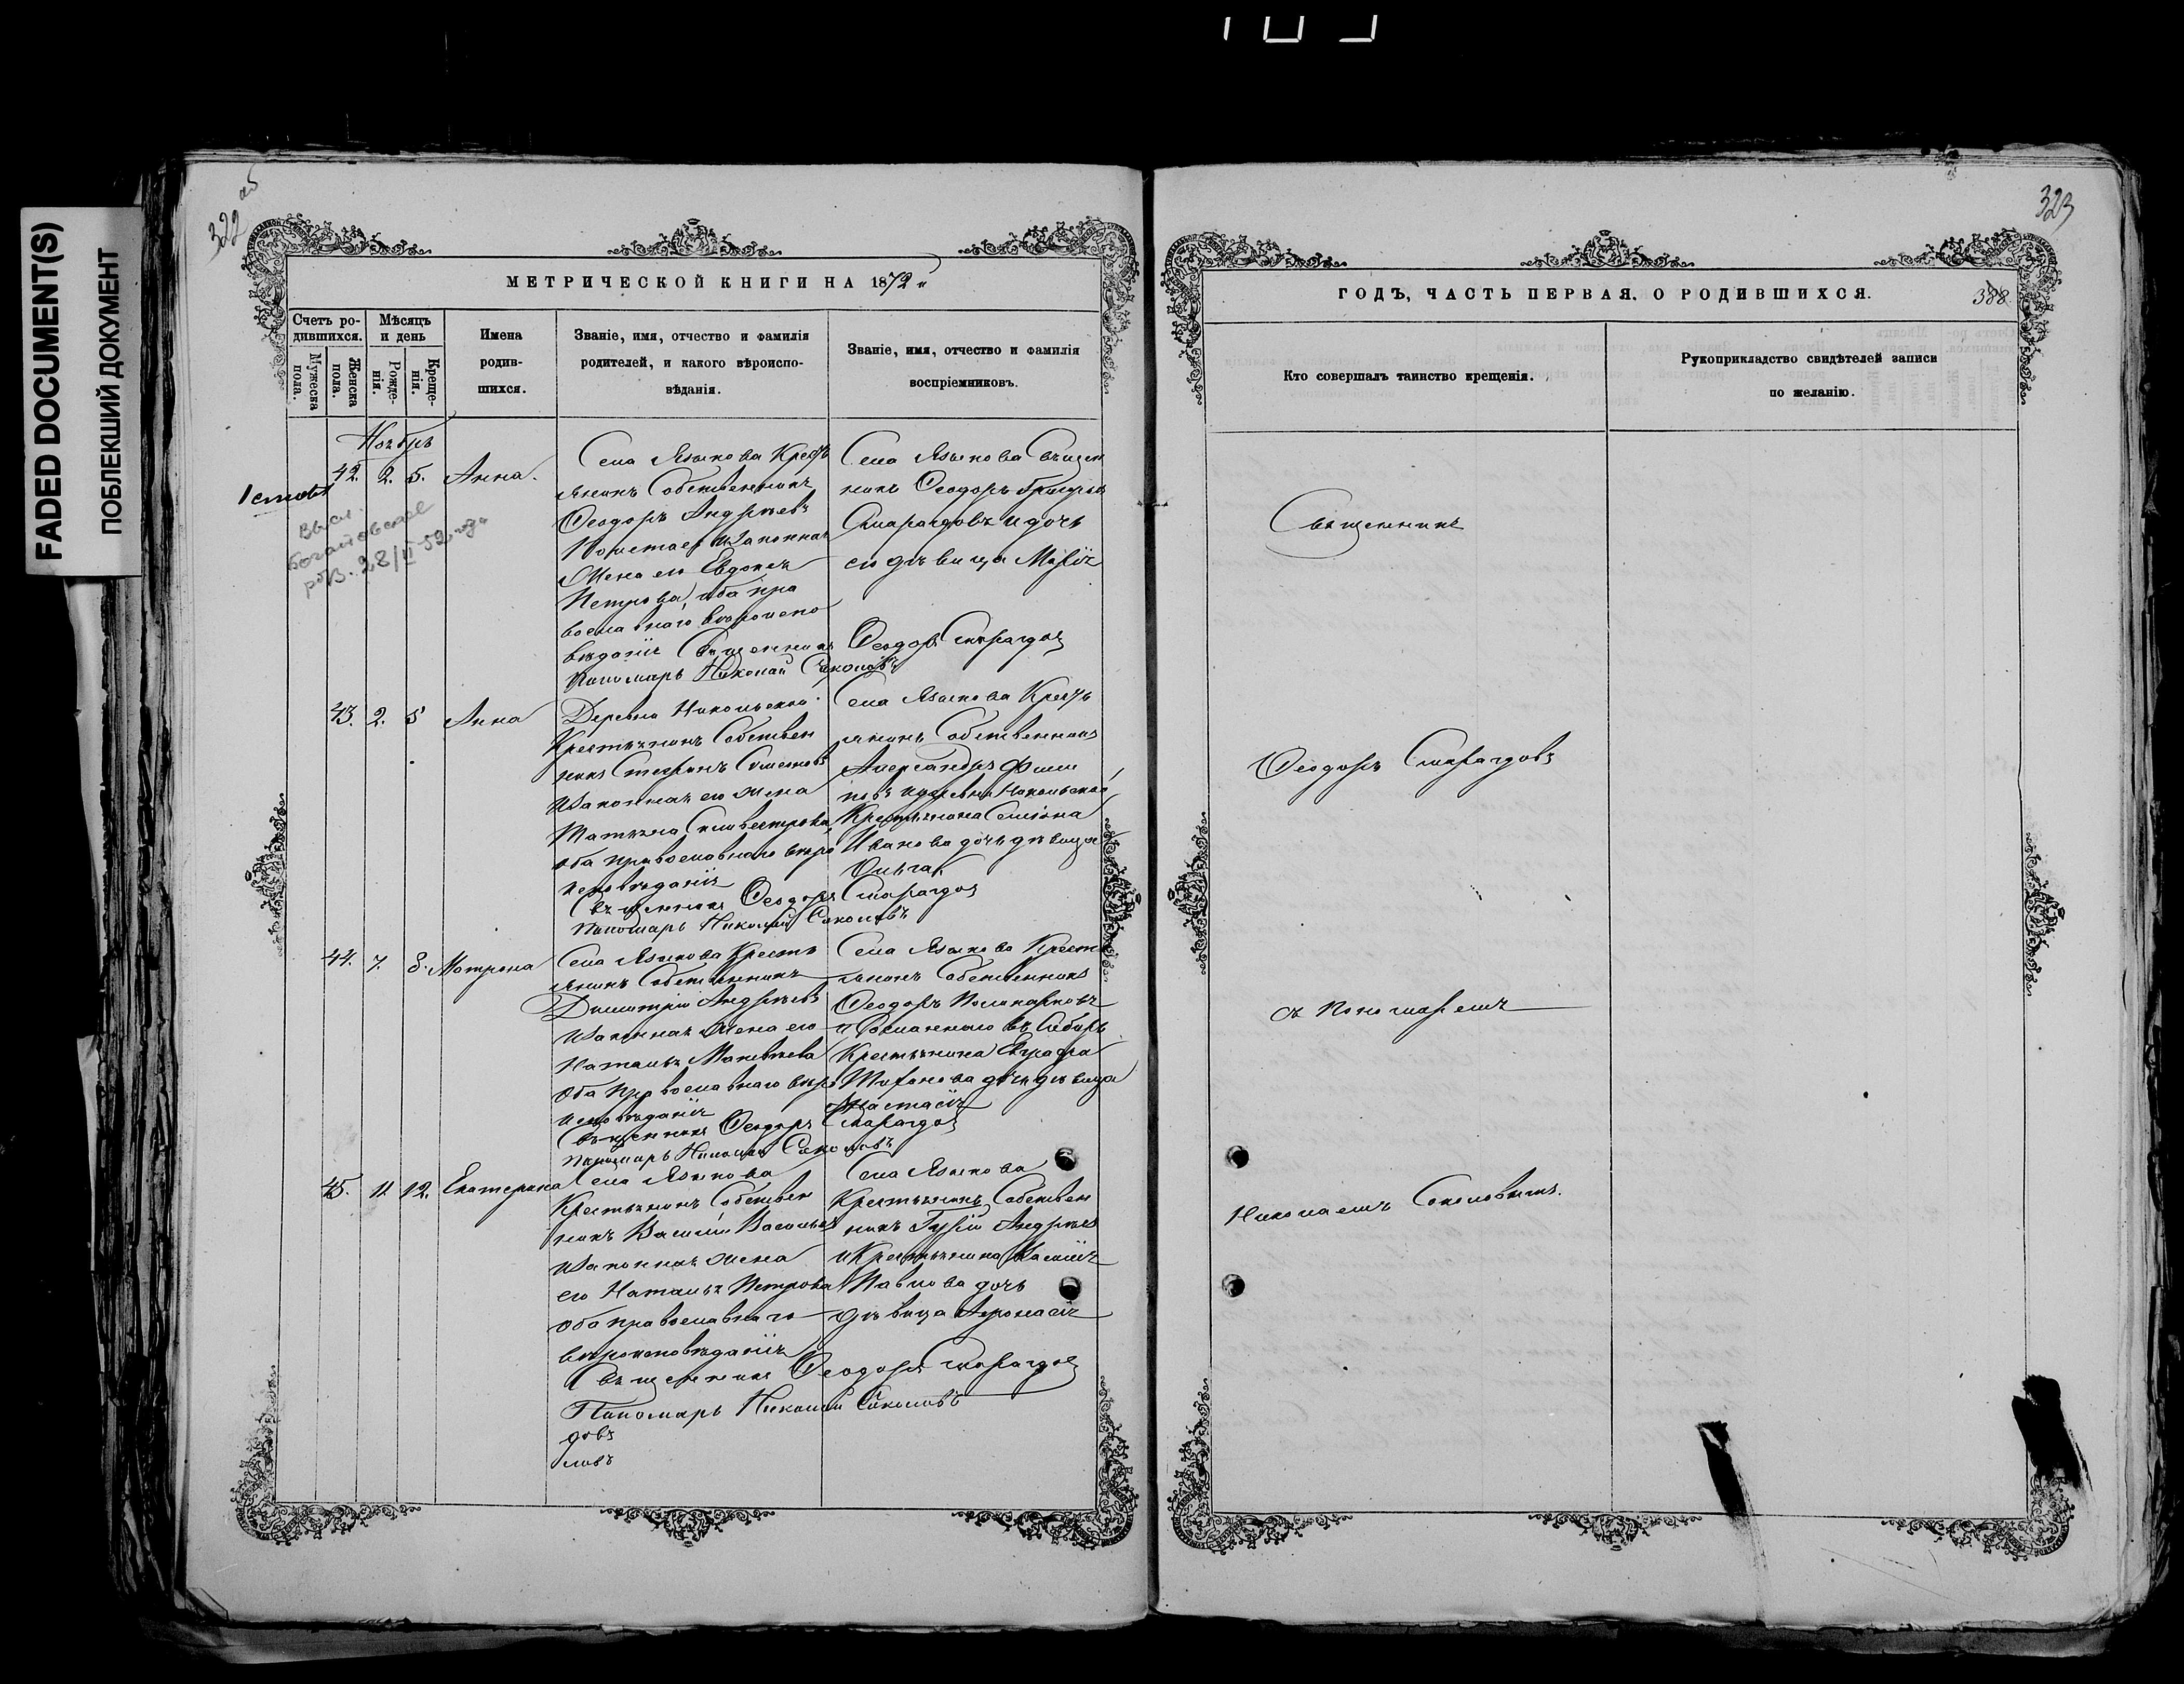 FADED DOCUMENT(S)
ПОБЛЕКШИЙ ДОКУМЕНТ
322 об
МЕТРИЧЕСКОЙ КНИГИ НА 1872
Счетъ ро-
дившихся.
Мужеска
пола.
Женска
пола.
Мѣсяцъ
и день
Рожде-
нія.
Креще-
нія.
Имена
родив-
шихся.
Званіе, имя, отчество и фамилія
родителей, и какого вѣроиспо-
вѣданія.
Званіе, имя, отчество и фамилія
воспріемниковъ.
Ноябрь
42. 2. 5. Анна.
28/II-52 года
Села Языкова Кресть
янинъ Собственникъ
Ѳеодоръ Андрѣевъ
законная
жена его Евдокія
Петрова, оба пра
вославнаго вѣроиспо
вѣданія Священникъ Ѳеодоръ Смарагдов
Пономарь Николай Соколовъ
Села Языкова Священ
никъ Ѳеодоръ
Смарагдовъ и дочь
его дѣвица Марія
43. 2. 5 Анна
Деревни Никольской
Крестьянинъ Собствен
никъ Стефанъ Симеоновъ
и законная его жена
Татьяна Сильвестрова,
оба православнаго вѣро
исповѣданія
Священникъ Ѳеодоръ Смарагдов
Пономарь Николай Соколовъ
Села Языкова Кресть
янинъ Собственникъ
Александръ Фили
повъ и деревни Никольской
Крестьянина Симеона
Иванова дочь дѣвица
Ольга
44. 7. 8. Матрона
Села Языкова Кресть
янинъ Собственникъ
Димитрій Андрѣевъ
и законная жена его
Наталья Матвѣева
оба православнаго вѣро
исповѣданія
Священникъ Ѳеодоръ Смарагдов
Пономарь Николай Соколовъ
Села Языкова Кресть
янинъ Собственникъ
Ѳеодоръ Поликарповъ
и Сосланнаго въ Сибирь
Крестьянина Евграфа
дочь дѣвица
Анастасія
45. 11 12. Екатерина
Села Языкова
Крестьянинъ Собствен
никъ Василій Васильев
и законная жена
его Наталья Петрова
оба православнаго
вѣроисповѣданія
Священникъ Ѳеодоръ Смарагдов
Пономарь Николай Соколовъ
довъ
ловъ
Села Языкова
Крестьянинъ Собствен
никъ Гурій Андрѣев
и Крестьянина
Павлова дочь
дѣвица Афанасія
323
ГОДЪ, ЧАСТЬ ПЕРВАЯ. О РОДИВШИХСЯ.
388
Кто совершалъ таинство крещенія.
Рукоприкладство свидѣтелей записи
по желанію.
Священникъ
Ѳеодоръ Смарагдовъ
съ Пономаремъ
Николаемъ Соколовымъ.